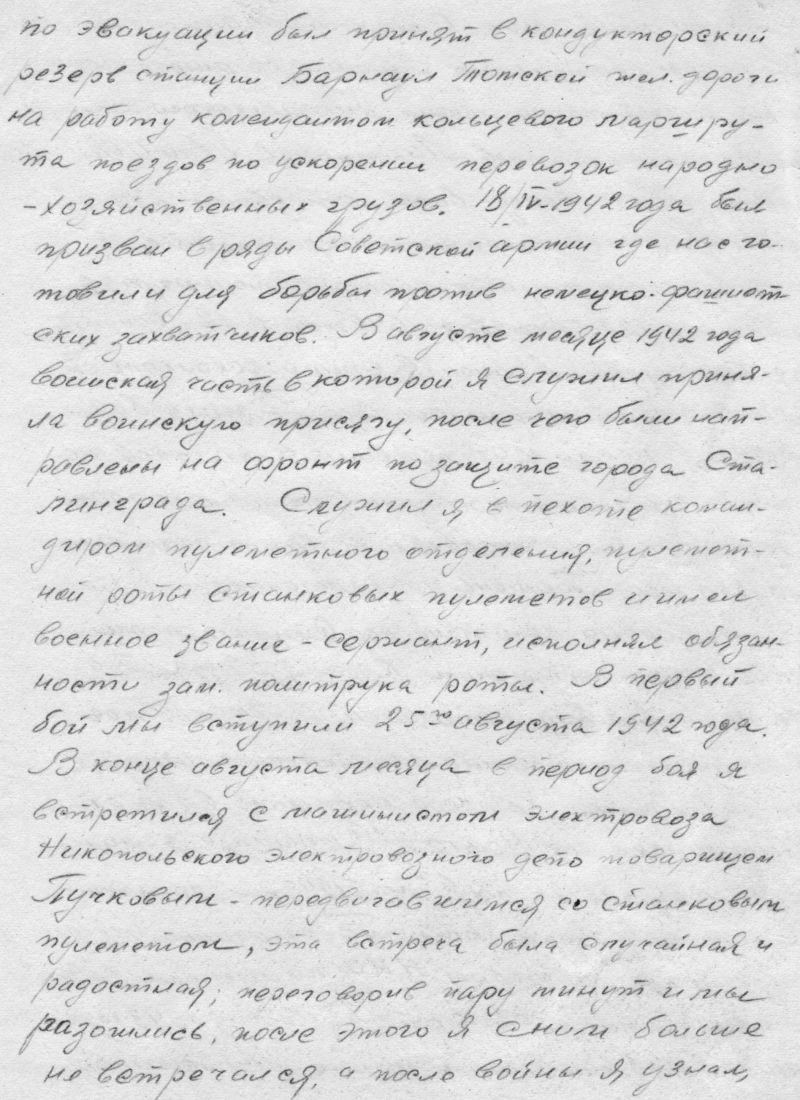 по эвакуации был принят в кондукторский
резерв станции Барнаул Томской жел. дороги
на работу комендантом кольцевого маршру-
та поездов по ускорении перевозок народно
-хозяйственных грузов. 18/IV-1942 года был
призван в ряды Советской армии где нас го-
товили для борьбы против немецко-фашист-
ских захватчиков. В августе месяце 1942 года
воинская часть в которой я служил приня-
ла воинскую присягу, после чего были нап-
равлены на фронт по защите города Ста-
линграда. Служил я в пехоте коман-
диром пулеметного отделения, пулемет-
ной роты станковых пулеметов и имел
военное звание - сержант, исполнял обязан-
ности зам. политрука роты. В первый
бой мы вступили 25го августа 1942 года.
В конце августа месяца в период боя я
встретился с машинистом электровоза
Никопольского электровозного депо товарищем
Пучковым - передвигавшимся со станковым
пулеметом, эта встреча была случайная и
радостная, переговорив пару минут и мы
разошлись, после этого я с ним больше
не встречался, а после войны я узнал,